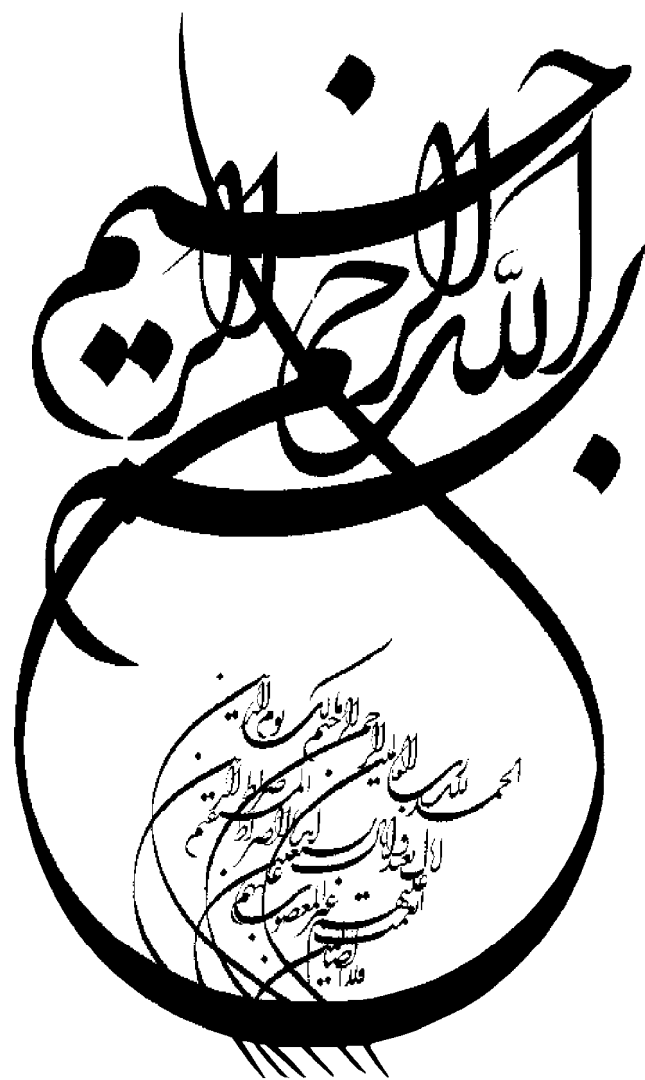 بسم الله الرحمن الرحیم
الحمد لله رب العالمین
الرحمن الرحیم مالک یوم الدین
ایاک نعبد و ایاک نستعین
اهدنا الصراط المستقیم
صراط الذین انعمت علیهم
غیر المغضوب علیهم
ولا الضالین